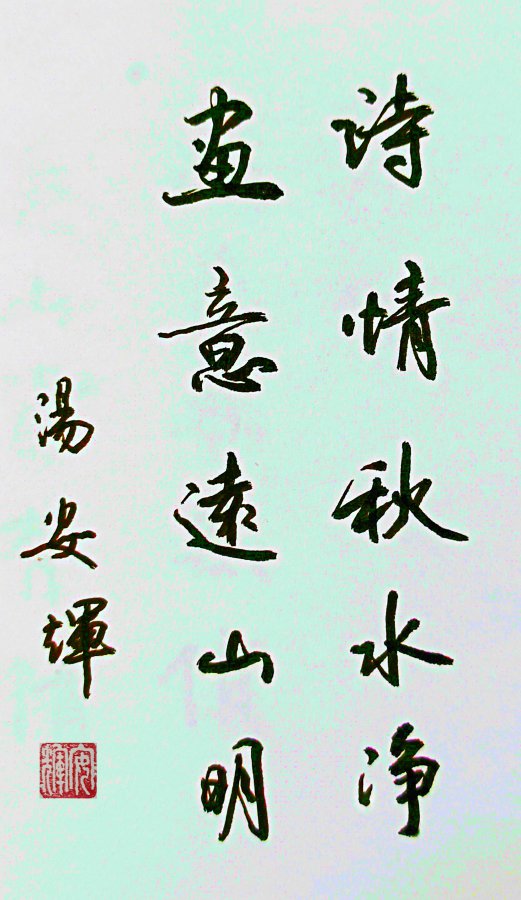 詩情秋水淨
畫意遠山明
湯安輝
安輝